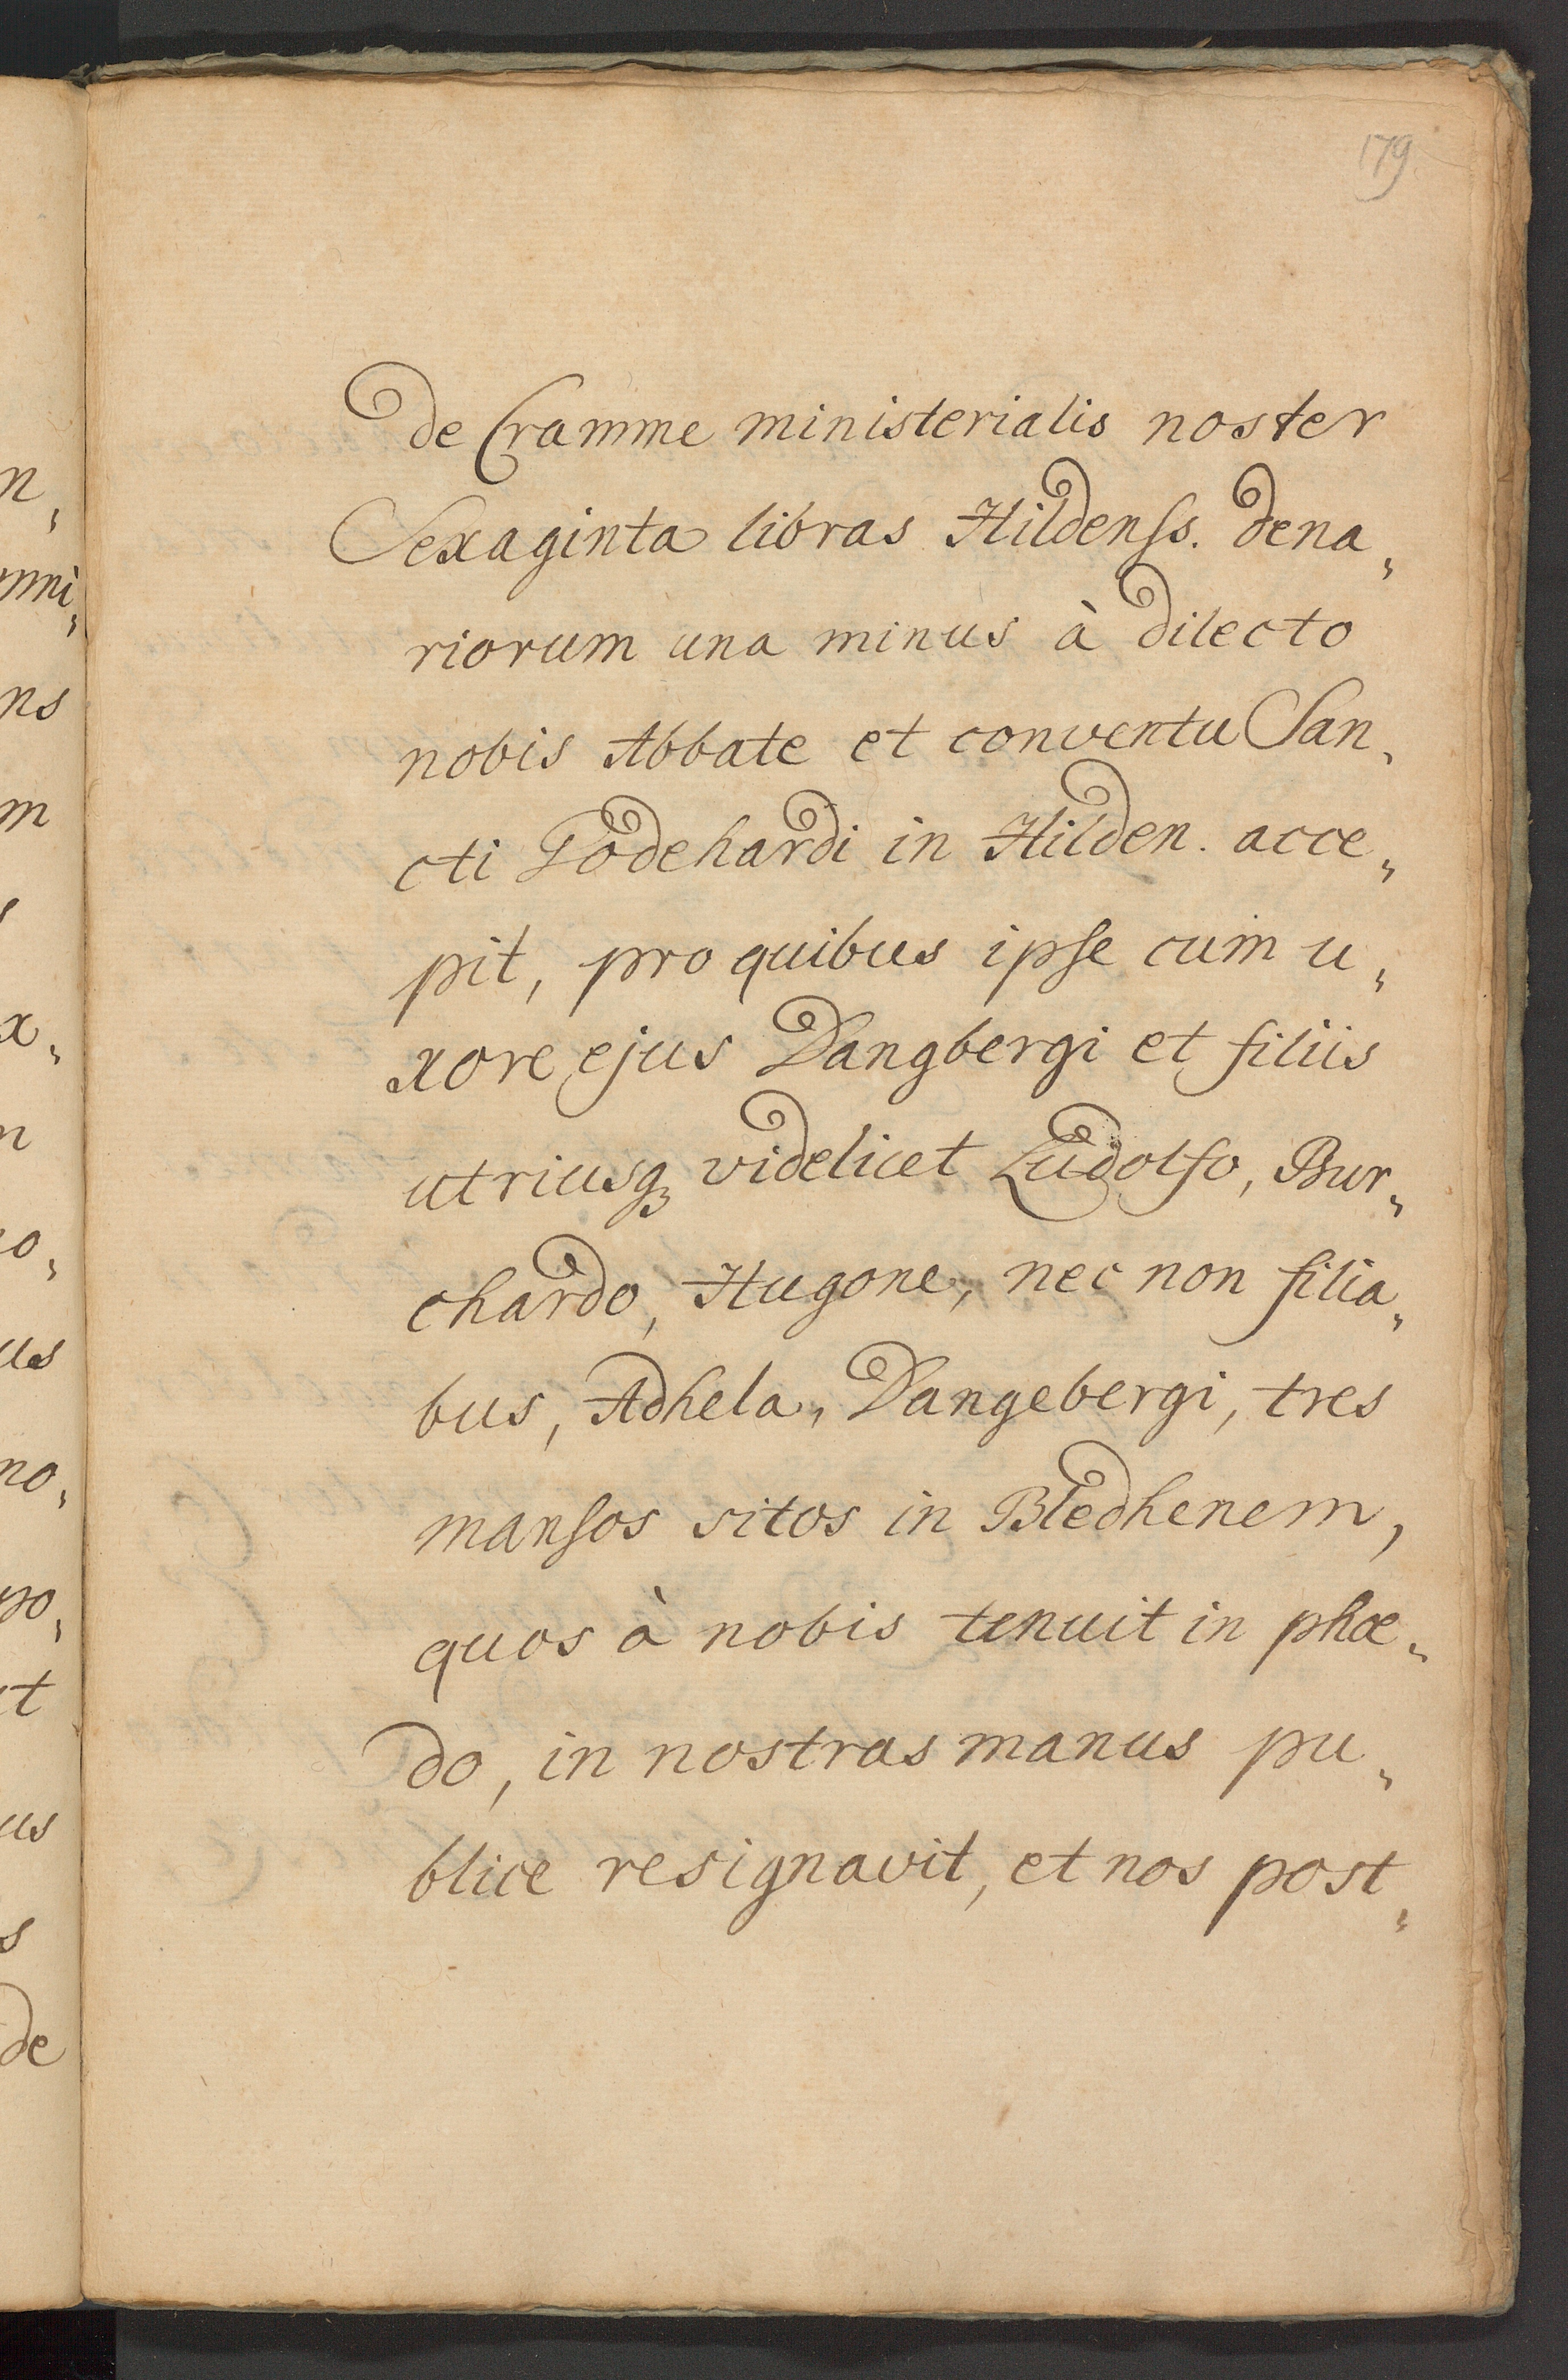 179
de Cramme ministerialis noster
Sexaginta libras Hildenss. dena„
riorum una minus à dilecto
nobis Abbate et conventu San„
cti Godehardi in Hilden. acce„
pit, pro quibus ipse cum u„
xore ejus Dangbergi et filiis
utriusq; videlicet Ludolfo, Bur„
chardo, Hugone, nec non filia„
bus, Adhela, Dangebergi, tres
mansos sitos in Bledhenem,
quos à nobis tenuit in phœ„
do, in nostras manus pu„
blice resignavit, et nos post„